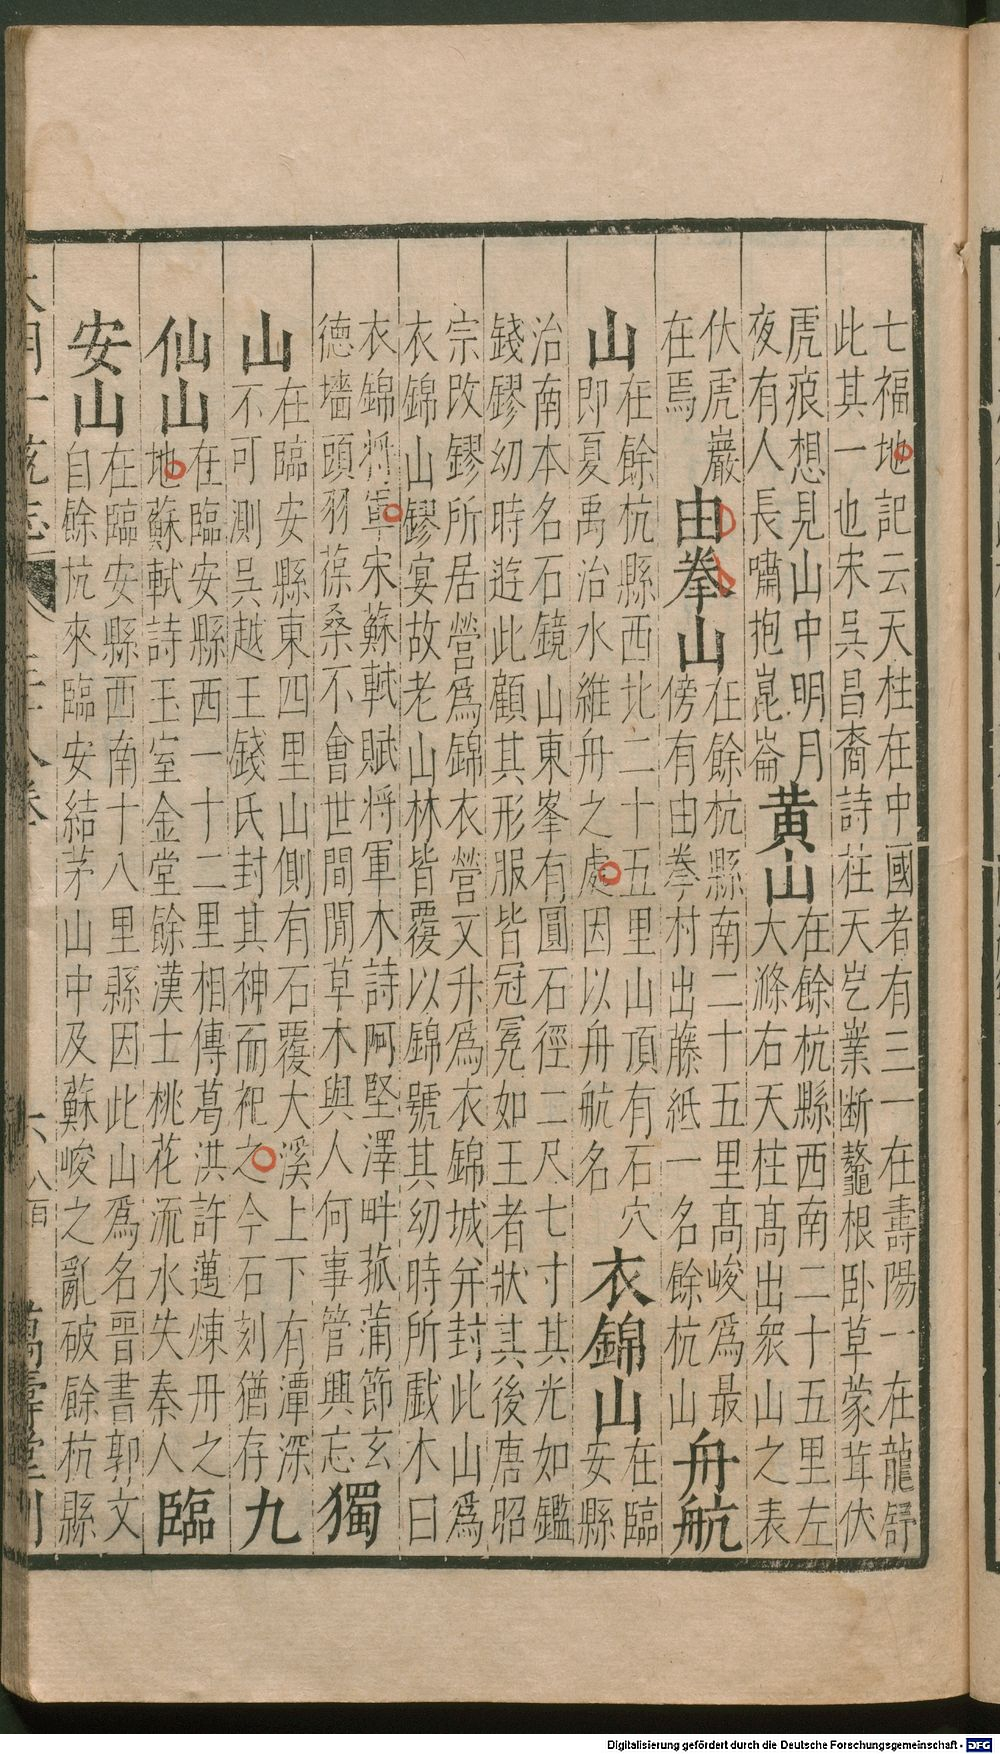 七福地記云天柱在中國者有三一在壽陽一在龍舒
此其一也宋吳昌裔詩荘天岂業断鼇根卧草蒙茸伏
虎痕想見山中明月
夜有人長嘯抱崑崙
黄山
在餘杭縣西南二十五里左
大滌右天柱髙出衆山之表
伏虎巖
在焉
由拳山
在餘杭縣南二十五里髙峻爲最
傍有由拳村出藤紙一名餘杭山
舟航
山
在餘杭縣西北二十五里山頂有石穴
即夏禹治水維舟之處因以舟航名
衣錦山
在臨
安縣
治南本名石鏡山東峯有圓石徑二尺七寸其光如鑑
錢鏐幼時遊此顧其形服皆冠冕如王者狀其後唐昭
宗改鏐所居營爲錦衣營又升爲衣錦城并封此山爲
衣錦山鏐宴故老山林皆覆以錦號其幼時所戲木曰
衣錦將軍宋蘇軾賦将軍木詩阿堅澤畔菰蒲節玄
德墻頭羽葆桑不會世間閒草木與人何事管興忘
獨
山
在臨安縣東四里山側有石覆大溪上下有潭深
不可測呉越王錢氏封其神而祀之今石刻猶存
九
仙山
在臨安縣西一十二里相傳葛洪許邁煉丹之
地蘇軾詩玉室金堂餘漢士桃花流水失秦人
臨
安山
在臨安縣西南十八里縣因此山爲名晉書郭文
自餘杭來臨安結茅山中及蘇峻之亂破餘杭縣
大明一統志
三十八卷
六
萬壽堂刊
Digitalisierung gefördert durch die Deutsche Forschungsgemeinschaft - DFG